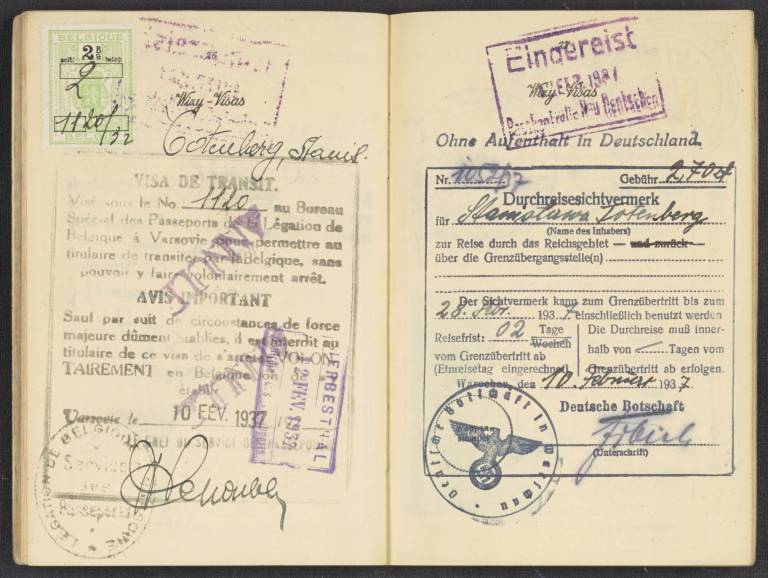 BELGIQUE
2
1120/32
BELGIE
26
Wizy-Visas
Totenberg, Stanisl.
VISA DE TRANSIT.
Visé sous le No. 1120 au Bureau
Spécial des Passeports de la Légation de
Belgique à Varsovie pour permettre au
titulaire de transiter par la Belgique, sans
pouvoir y faire volontairement arrêt.
AVIS IMPORTANT
Sauf par suit de circonstances de force
majeure dûment établies, il est interdit au
titulaire de ce visa de s'arrêter VOLON
TAIREMENT en Belgique
Varsovie le 10 FEV. 1937
HERBESTHAL
12 FEV. 1937
LÉGATION DE BELGIQUE VARSOVIE
Service
des
Passeports
Eingereist
FEB. 1937
Wizy-Visas
Passkontrolle Neu Bentschen
Ohne Aufenthalt in Deutschland.
Nr. Gebühr 2,70
Durchreisesichtvermerk
für Stanisława Totenberg
(Name des Inhabers)
zur Reise durch das Reichsgebiet — und zurück —
über die Grenzübergangsstelle(n)
Der Sichtvermerk kann zum Grenzübertritt bis zum
28. Febr. 1937 einschließlich benutzt werden
Reisefrist: 02 Tage
Wochen
vom Grenzübertritt ab
(Einreisetag eingerechnet)
Die Durchreise muß inner-
halb von Tagen vom
Grenzübertritt ab erfolgen.
Warschau, den 10 Februar 1937
Deutsche Botschaft
(Unterschrift)
Deutsche Botschaft in Warschau